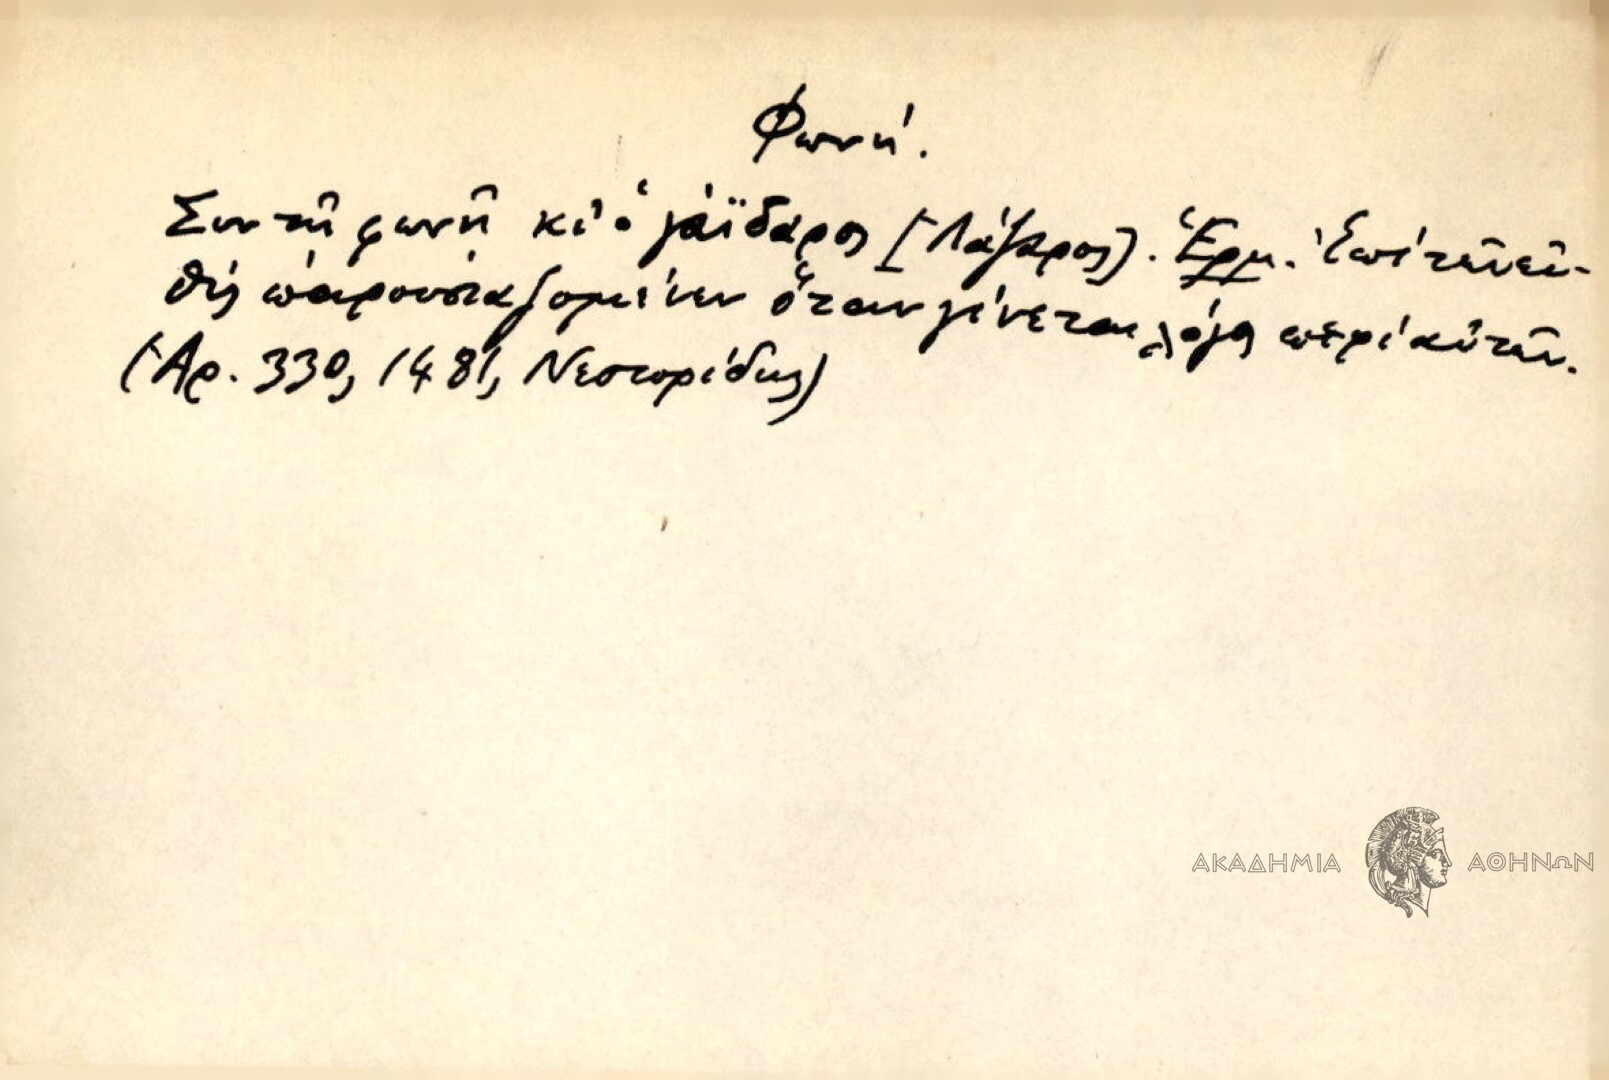 Φωνή.
Συν τῇ φωνῇ κι' ὁ γάϊδαρος [Λάζαρος]. Ἑρμ. Ἐπὶ τῶν εὐ-
θὺς παρουσιαζομένων ὅταν γίνεται λόγος περὶ αὐτῶν.
(Ἀρ. 330, 1481, Νεστορίδης)
ΑΚΑΔΗΜΙΑ ΑΘΗΝΩΝ